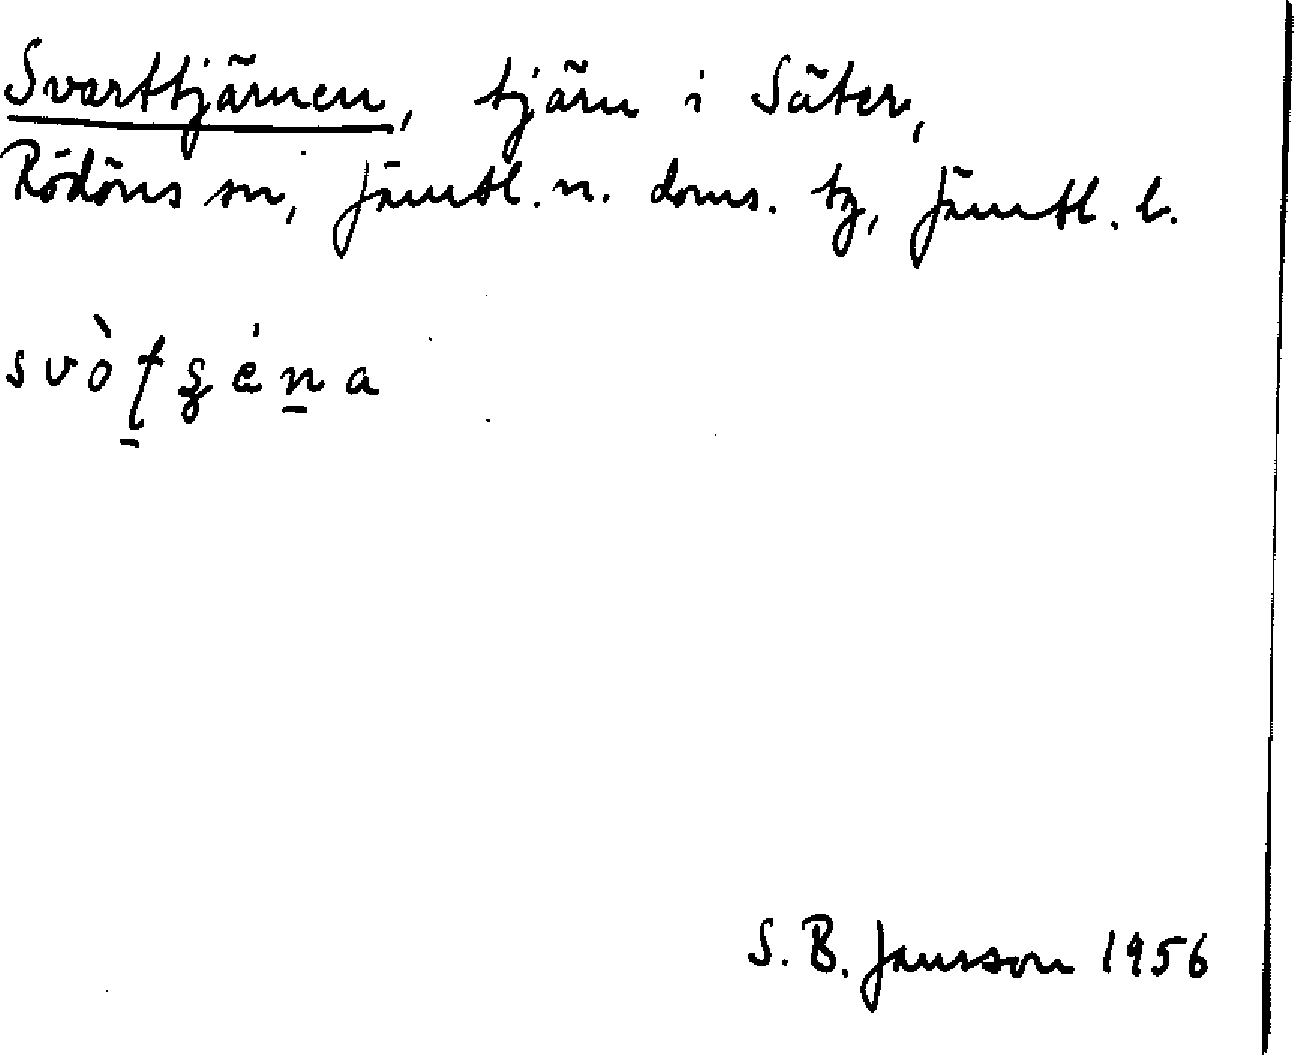 Svarttjärnen, tjärn i Säter,
Rödöns sn, Jämtl. n. doms. tg, Jämtl. l.
S. B. Jansson 1956